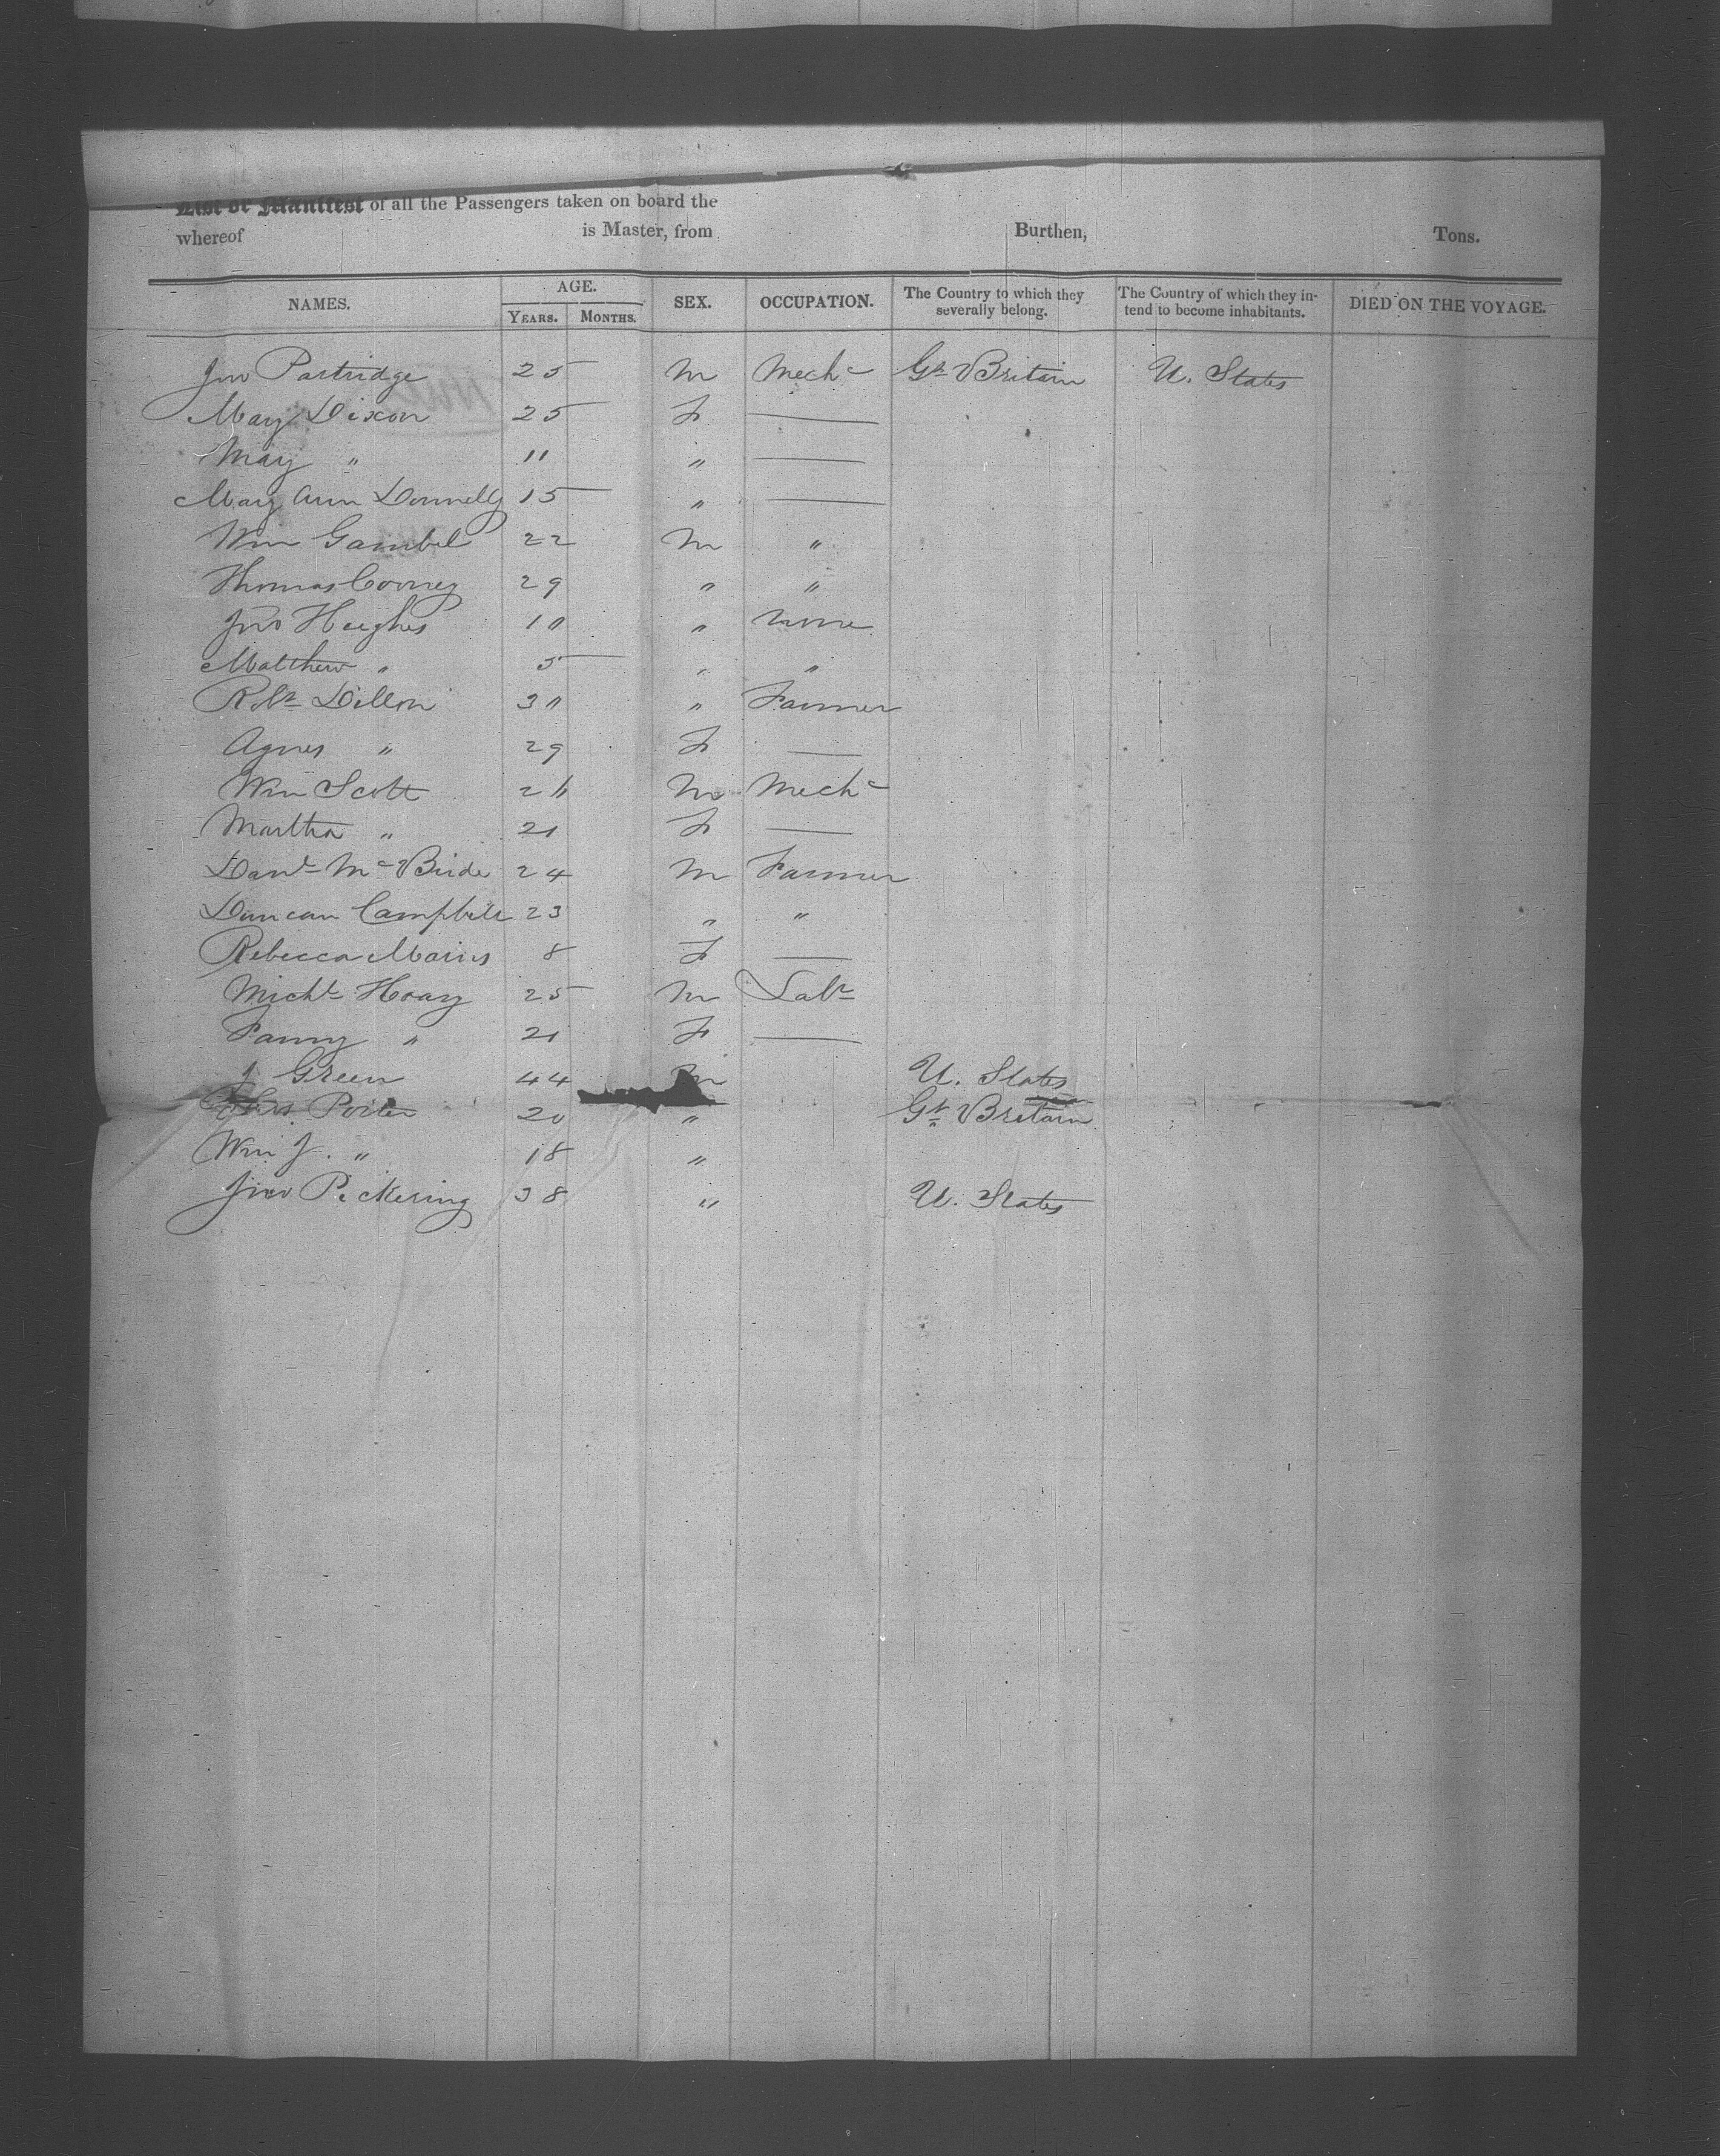 List or Manifest of all the Passengers taken on board the
whereof is Master, from Burthen, Tons.
NAMES. AGE. YEARS. MONTHS. SEX. OCCUPATION. The Country to which they severally belong. The Country of which they intend to become inhabitants. DIED ON THE VOYAGE.
Jno Partridge 25 M Mechc Gt Britain U. States
Mary Dixon 25 F —
Mary " 11 " —
Mary Ann Donnelly 15 " —
Wm Gambel 22 M "
Thomas Cooney 29 " "
Jno Hughes 10 " None
Matthew " 5 " "
Robt Dillon 30 " Farmer
Agnes " 29 F —
Wm Scott M Mechc
Martha " 21 F —
Danl McBride 24 M Farmer
Duncan Campbell 23 " "
Rebecca 8 F —
Michl Hoay 25 M Labr
Fanny " 21 F —
J Green 44 M U. States
Porter 20 " Gt Britain
Wm J. " 18 "
Jno Pickering 38 " U. States